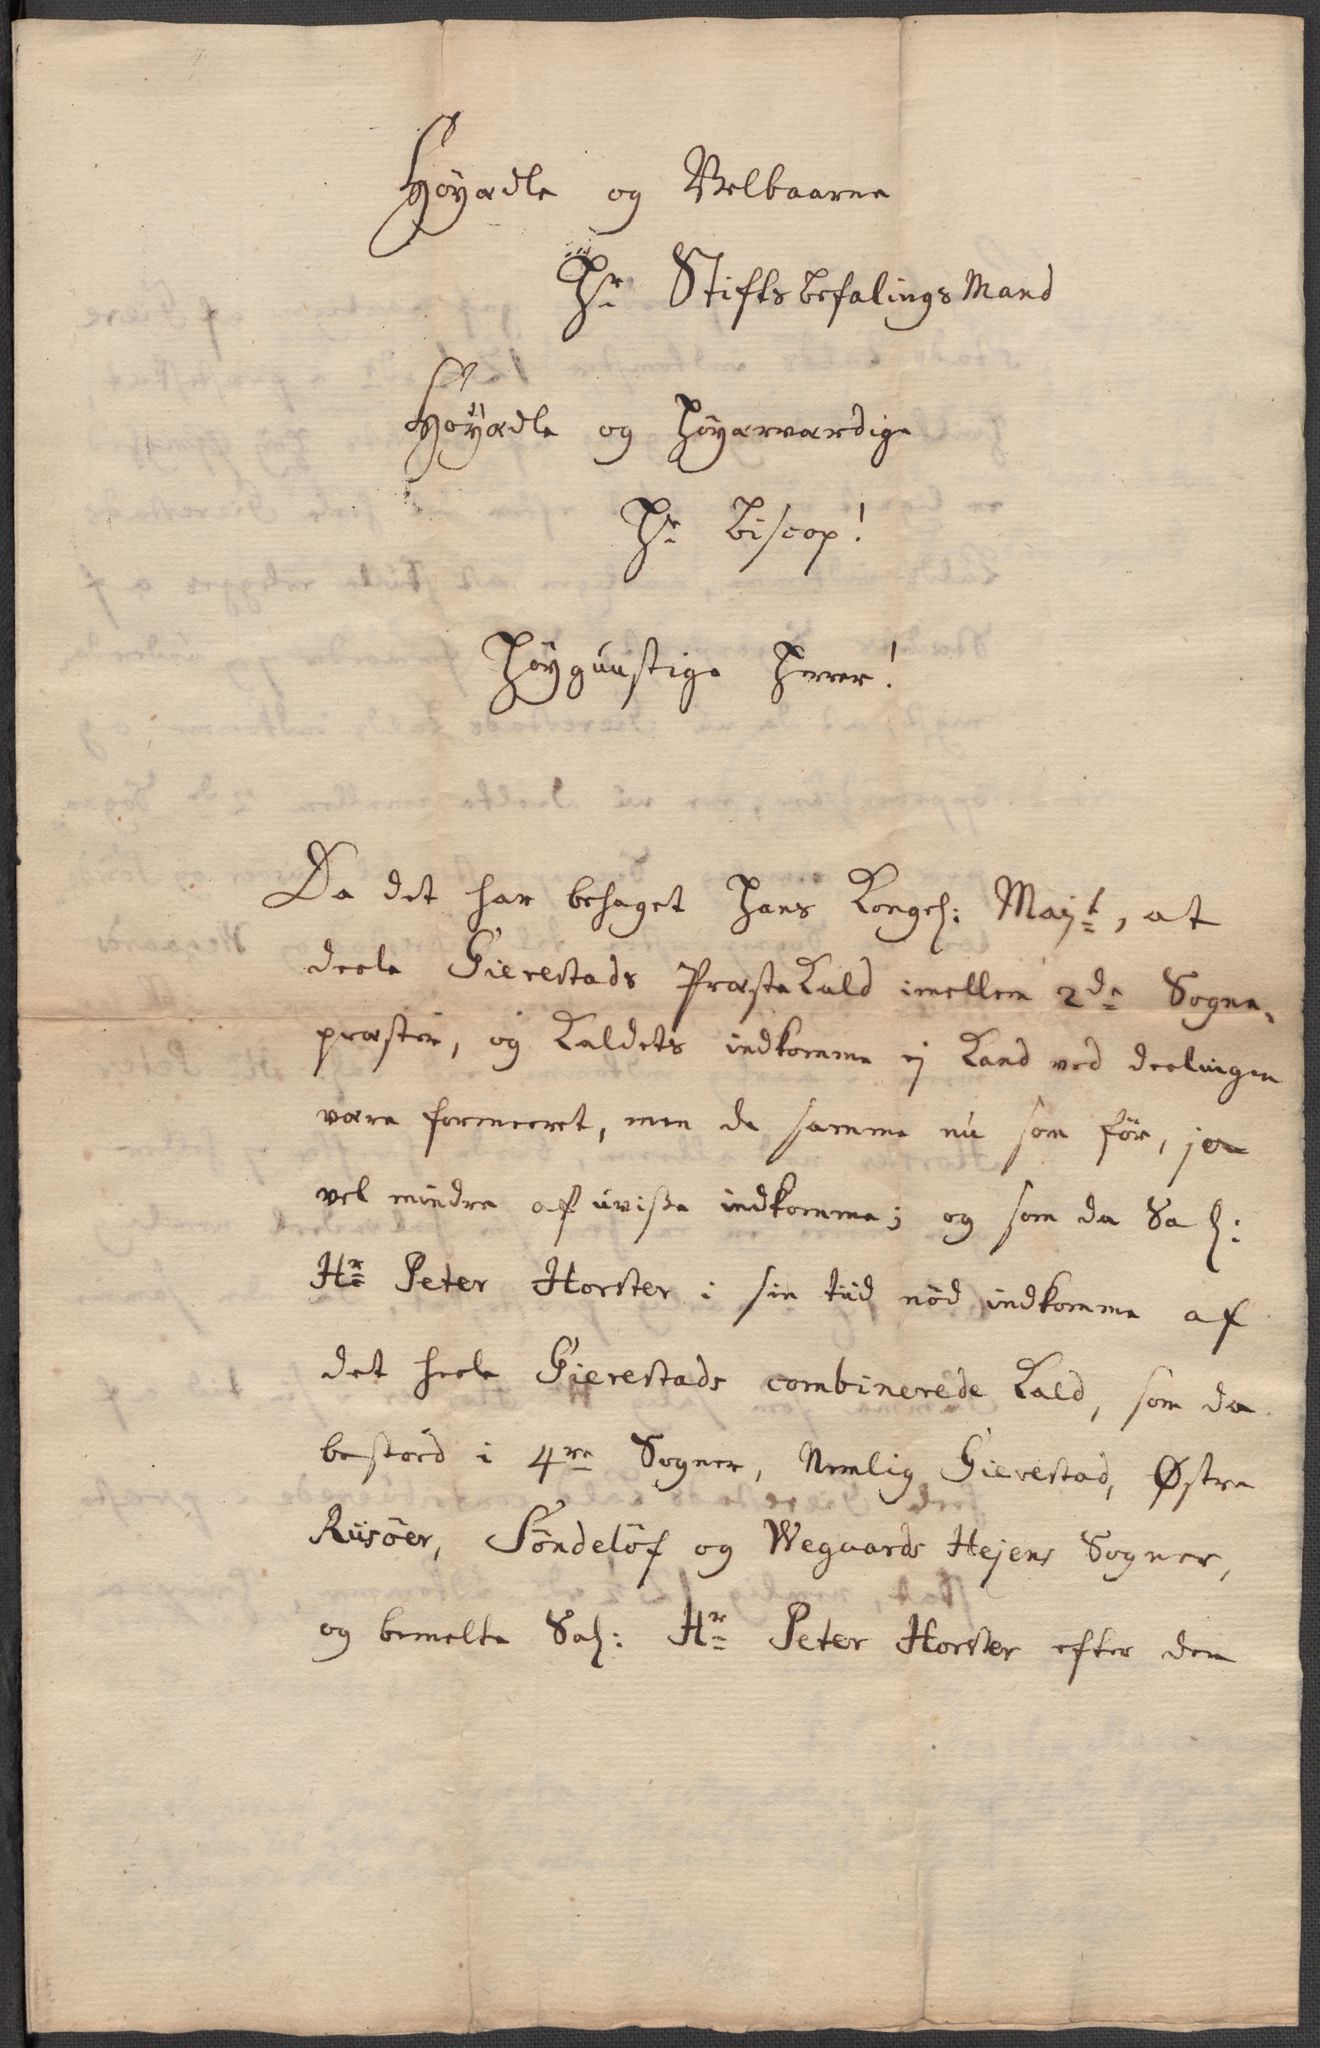 Høyædle og Velbaarne
Hr Stiftsbefalings Mand
Høyædle og Høyærværdige
Hr Biscop!
Høygunstige Herrer!
Da det har behaget Hans Kongel: Mayt, at
deele Gierestads Præste Kald imellem 2de Sogne-
præster, og Kaldets indkomme ej Kand ved deelingen
være formeeret, men de samme nu som før, ja
vel mindre af uvisse indkomme; og som da Sal:
Hr Peter Horster i sin tiid nød indkomme af
det heele Gierestads combinerede Kald, som da
bestoed i 4re Sogner, Nemlig Gierestad, Østre
Riisöer, Söndelöf og Wegaards Hejens Sogner,
og bemelte Sal: Hr Peter Horster efter den